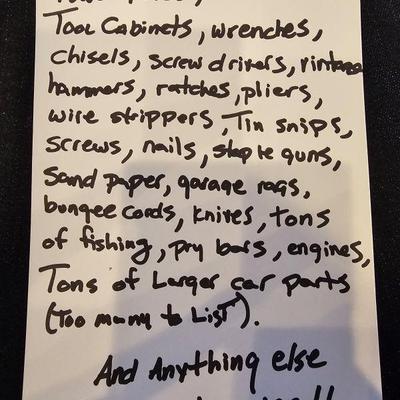 Tool Cabinets, wrenches,
chisels, screw drivers, vintage
hammers, ratches, pliers,
wire strippers, Tin snips,
screws, nails, staple guns,
sand paper, garage rags,
bungee cords, knives, tons
of fishing, pry bars, engines,
Tons of Larger car parts
(Too many to List).
And Anything else